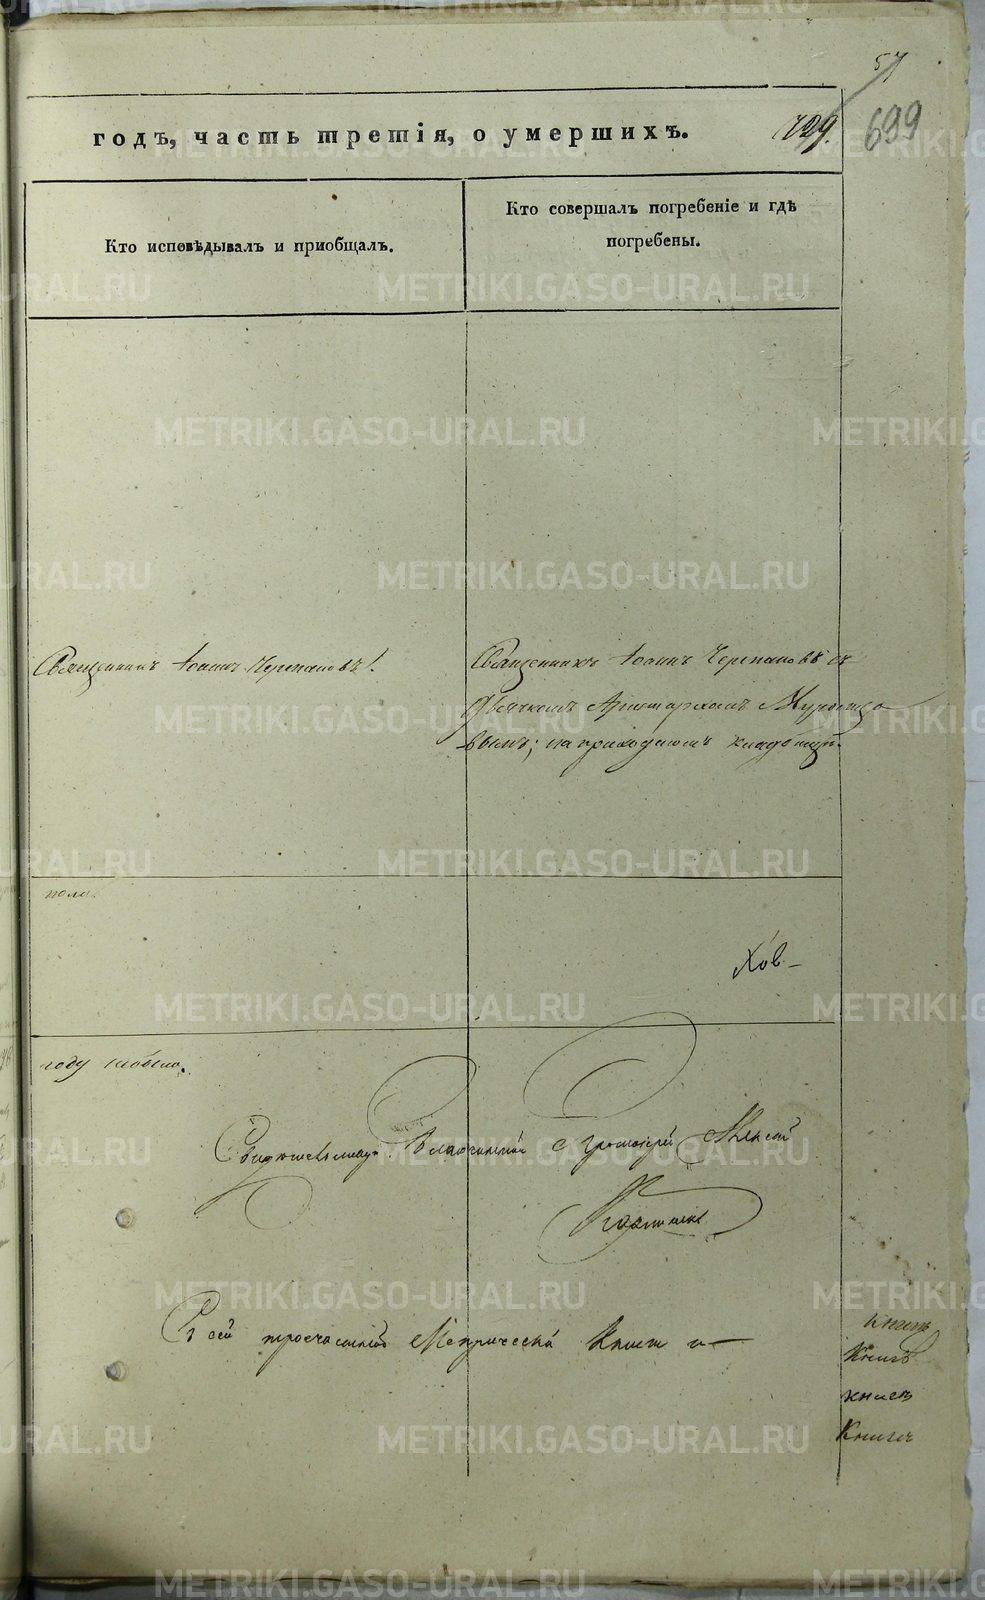 57
годъ, часть третія, о умершихъ.
729.
699
Кто исповѣдывалъ и приобщалъ.
Кто совершалъ погребеніе и гдѣ
погребены.
Священникъ Іоаннъ Черепановъ.
Священникъ Іоаннъ Черепановъ съ
дьячкомъ Аристархомъ
вымъ; на приходскомъ кладбищѣ.
пола.
году небыло.
Свидѣтельствовалъ Благочинный Алексѣй
В сей троечастной Метрической Книгѣ и
книгъ
Книгъ
книгъ
Книгъ
METRIKI.GASO-URAL.RU